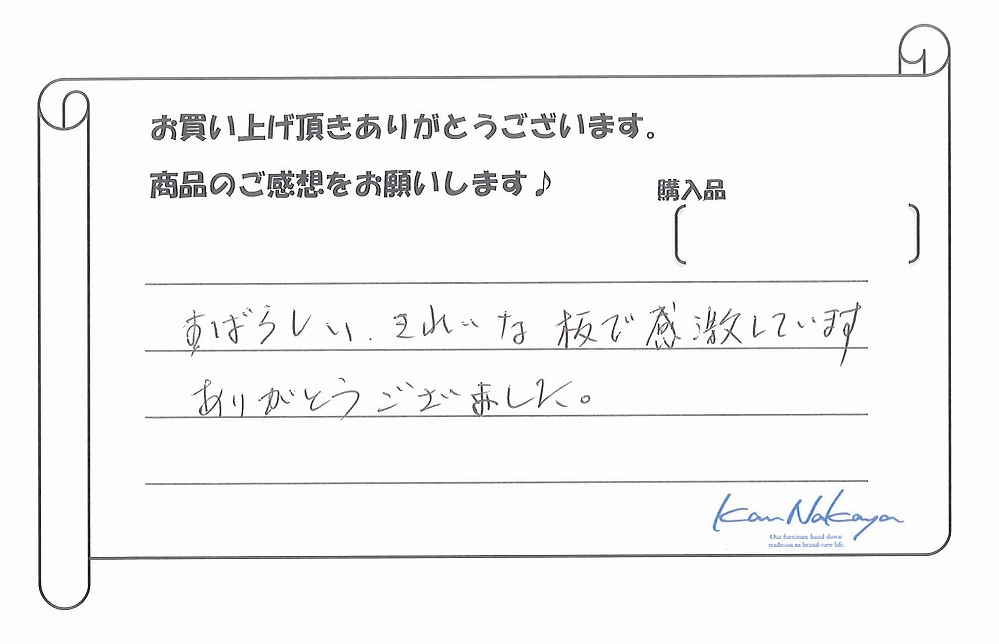 お買い上げ頂きありがとうございます。
商品のご感想をお願いします♪
購入品
すばらしい、きれいな板で感激しています
ありがとうございました。
Kan Nakaya
Our furniture hand down
tradition to brand-new life.